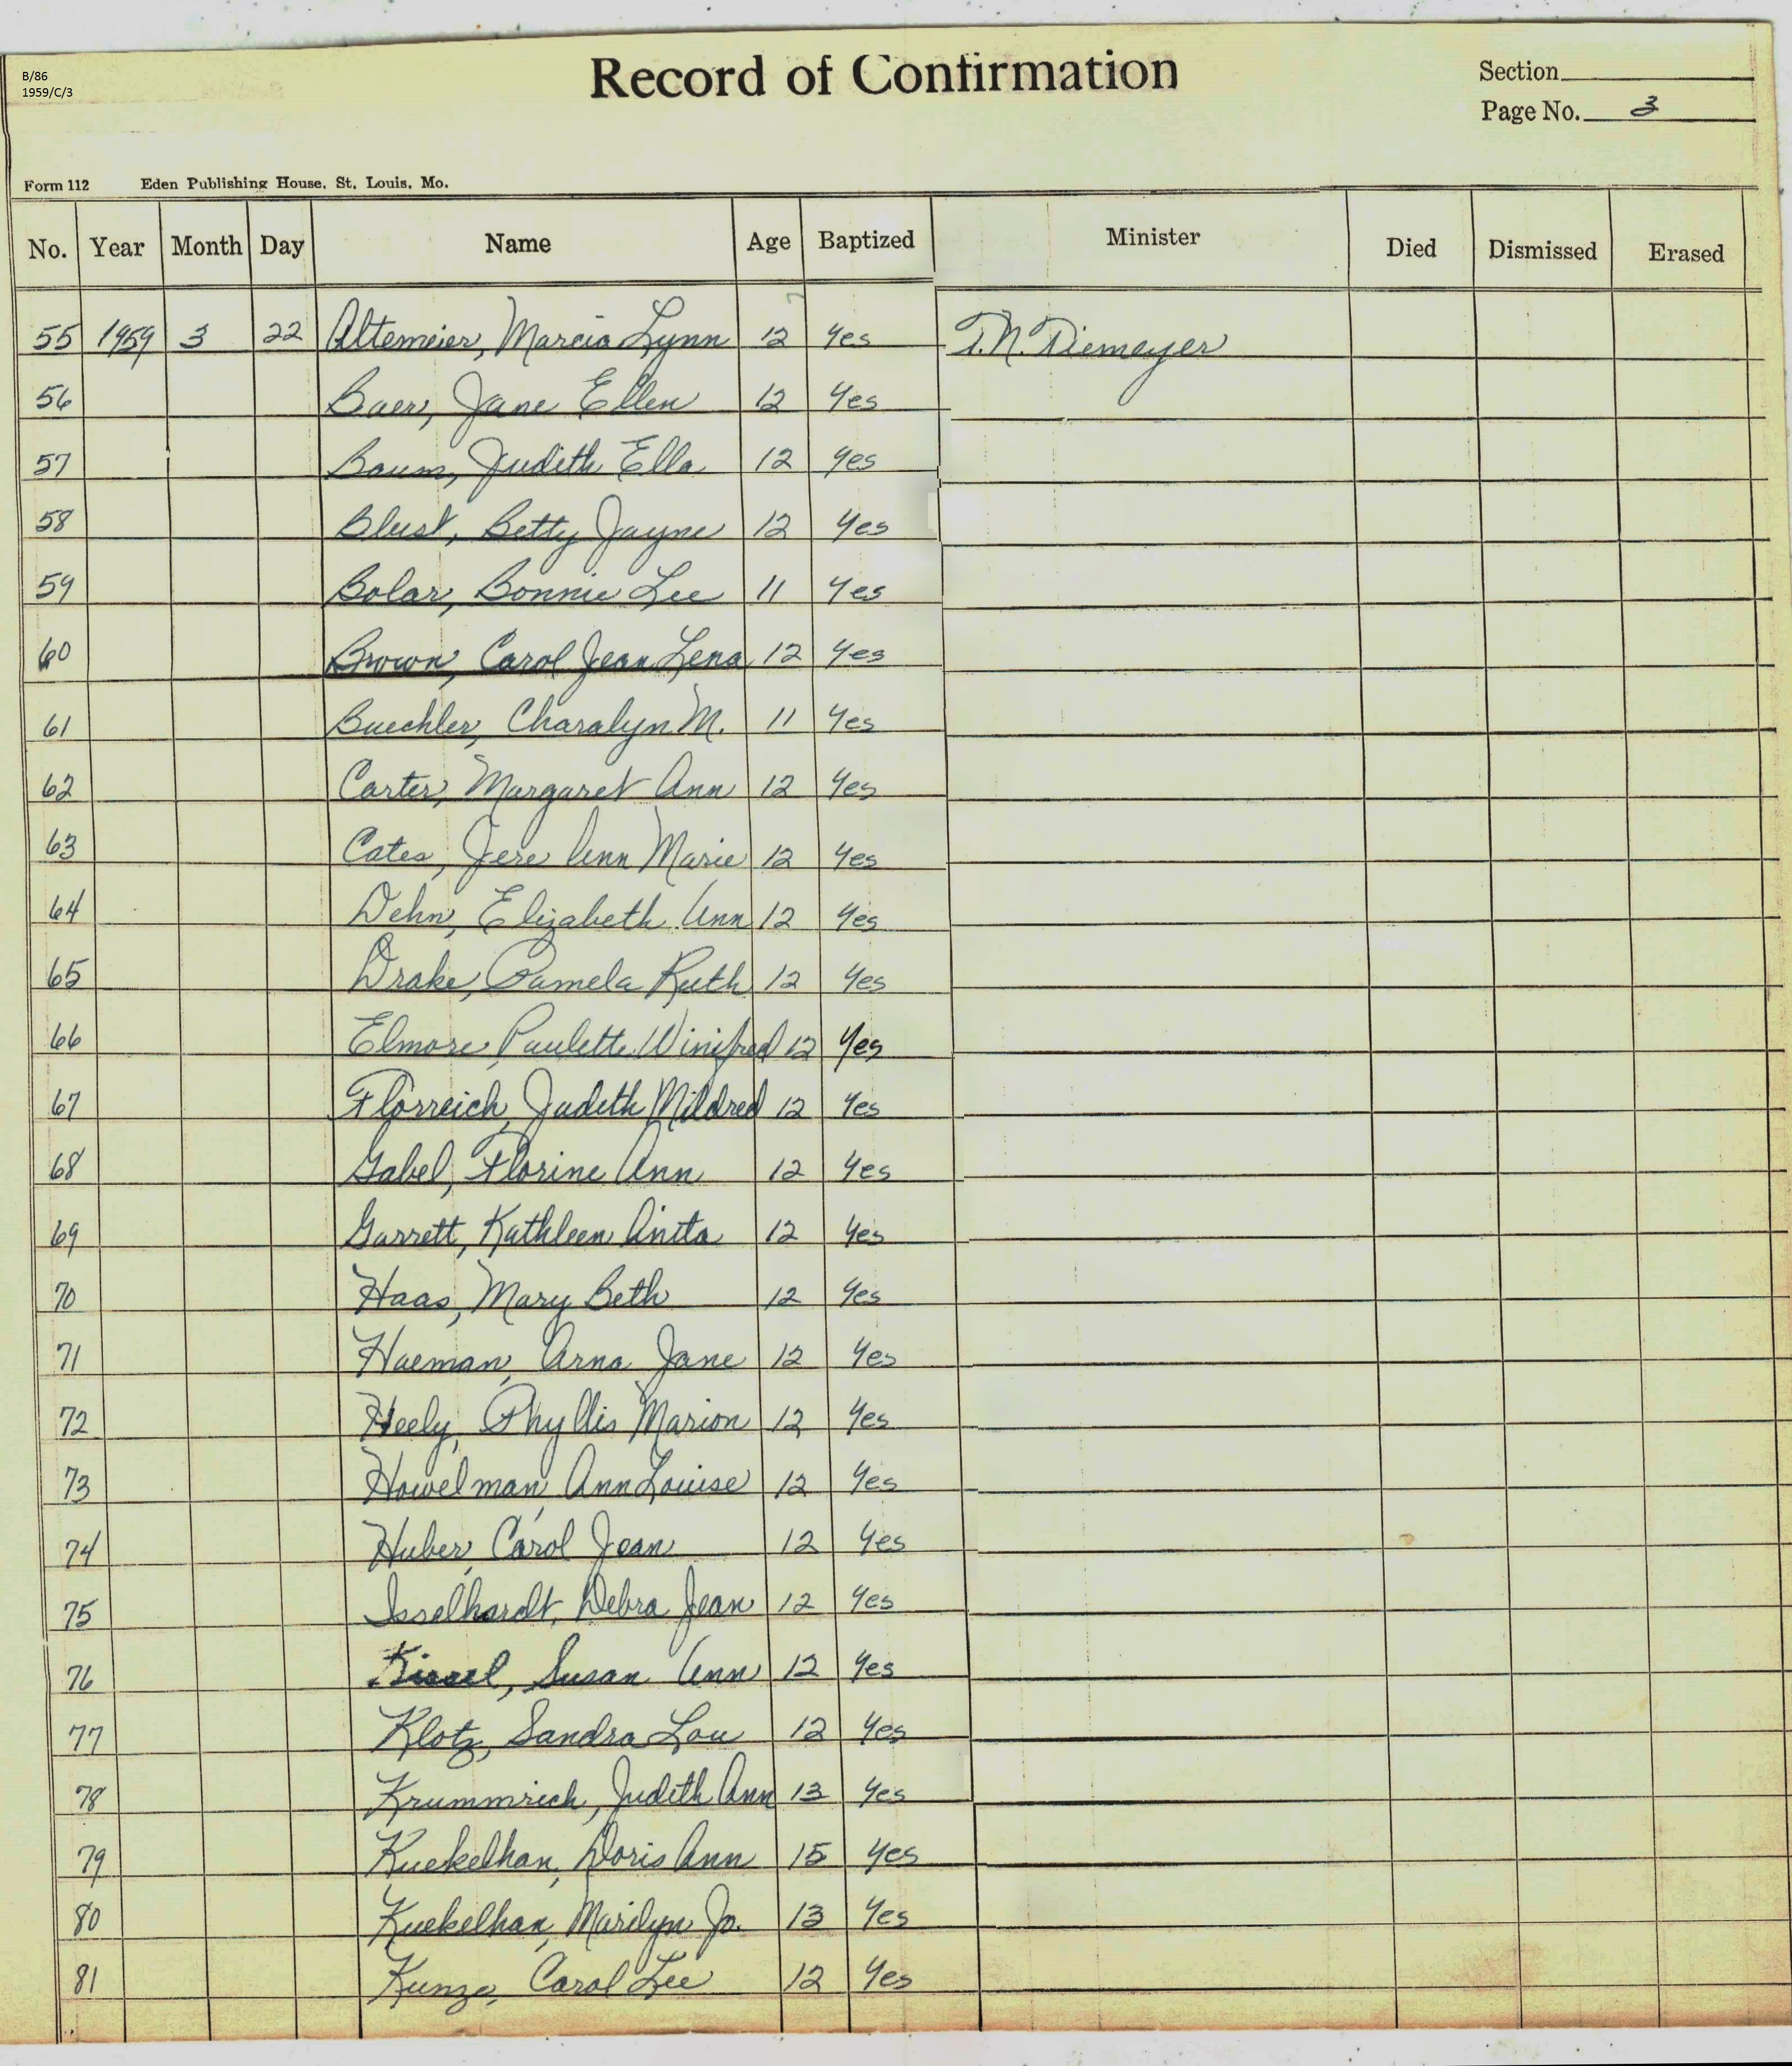 B/86
1959/C/3
Record of Confirmation
Section
Page No. 3
Form 112 Eden Publishing House, St. Louis, Mo.
No. Year Month Day Name Age Baptized Minister Died Dismissed Erased
55 1959 3 22 Altemeier, Marcia Lynn 12 Yes T.N. Tiemeyer
56 Baer, Jane Ellen 12 Yes
57 Baum, Judith Ella 12 Yes
58 Blust, Betty Jayne 12 Yes
59 Bolar, Bonnie Lee 11 Yes
60 Brown, Carol Jean Lena 12 Yes
61 Buechler, Charalyn M. 11 Yes
62 Carter, Margaret Ann 12 Yes
63 Cates, Jere Ann Marie 12 Yes
64 Dehn, Elizabeth Ann 12 Yes
65 Drake, Pamela Ruth 12 Yes
66 Elmore, Paulette Winifred 12 Yes
67 Florreich, Judith Mildred 12 Yes
68 Gabel, Florine Ann 12 Yes
69 Garrett, Kathleen Anita 12 Yes
70 Haas, Mary Beth 12 Yes
71 Haeman, Arna Jane 12 Yes
72 Heely, Phyllis Marion 12 Yes
73 Howelman, Ann Louise 12 Yes
74 Huber, Carol Jean 12 Yes
75 Isselhardt, Debra Jean 12 Yes
76 Kissel, Susan Ann 12 Yes
77 Klotz, Sandra Lou 12 Yes
78 Krummrich, Judith Ann 13 Yes
79 Kuekelhan, Doris Ann 15 Yes
80 Kuekelhan, Marilyn Jo. 13 Yes
81 Kunze, Carol Lee 12 Yes